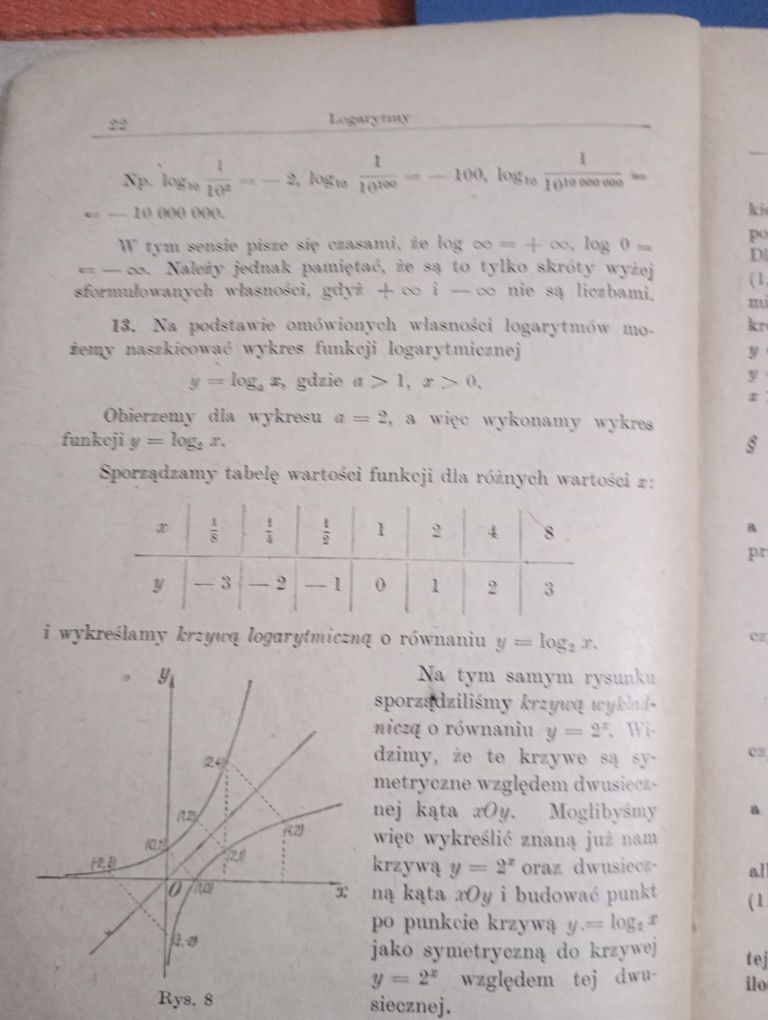 22
Logarytmy
Np. log₁₀ 1/10² = — 2, log₁₀ 1/10¹⁰⁰ = — 100, log₁₀ 1/10¹⁰ ⁰⁰⁰ ⁰⁰⁰ =
= — 10 000 000.
W tym sensie pisze się czasami, że log ∞ = + ∞, log 0 =
= — ∞. Należy jednak pamiętać, że są to tylko skróty wyżej
sformułowanych własności, gdyż + ∞ i — ∞ nie są liczbami.
13. Na podstawie omówionych własności logarytmów mo-
żemy naszkicować wykres funkcji logarytmicznej
y = logₐ x, gdzie a > 1, x > 0.
Obierzemy dla wykresu a = 2, a więc wykonamy wykres
funkcji y = log₂ x.
Sporządzamy tabelę wartości funkcji dla różnych wartości x:
x 1/8 1/4 1/2 1 2 4 8
y — 3 — 2 — 1 0 1 2 3
i wykreślamy krzywą logarytmiczną o równaniu y = log₂ x.
Na tym samym rysunku
sporządziliśmy krzywą wykład-
niczą o równaniu y = 2ˣ. Wi-
dzimy, że te krzywe są sy-
metryczne względem dwusiecz-
nej kąta xOy. Moglibyśmy
więc wykreślić znaną już nam
krzywą y = 2ˣ oraz dwusiecz-
ną kąta xOy i budować punkt
po punkcie krzywą y = log₂ x
jako symetryczną do krzywej
y = 2ˣ względem tej dwu-
siecznej.
y
(2,4)
(1,2)
(4,2)
(0,1)
(2,1)
O
(1,0)
x
Rys. 8